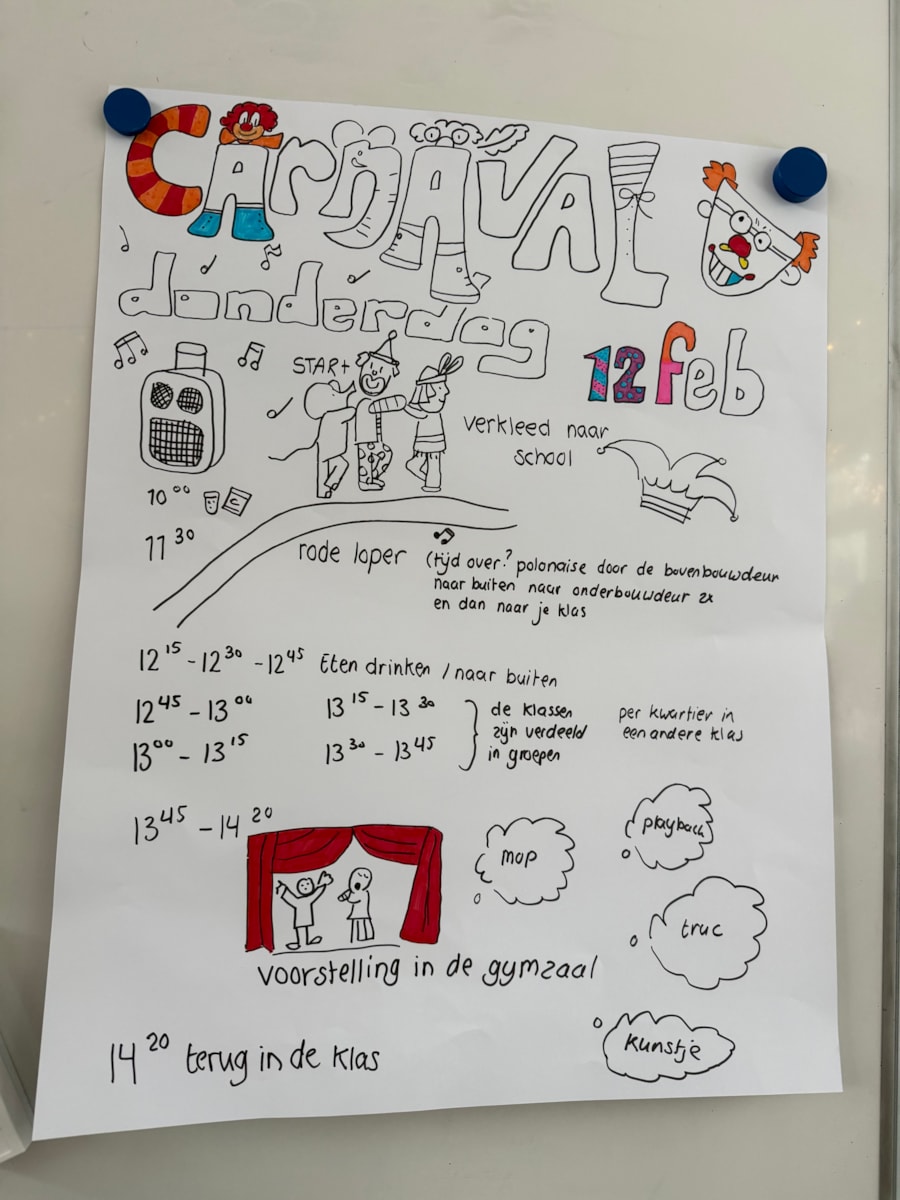 CArnAVAL
dondérdag
12 feb
START
verkleed naar
school
10 00
11 30
rode loper
(tijd over? polonaise door de bovenbouwdeur
naar buiten naar onderbouwdeur 2x
en dan naar je klas
12 15 - 12 30 - 12 45 Eten drinken / naar buiten
12 45 - 13 00
13 15 - 13 30
13 00 - 13 15
13 30 - 13 45
de klassen
zijn verdeeld
in groepen
per kwartier in
een andere klas
13 45 - 14 20
mop
playback
truc
voorstelling in de gymzaal
kunstje
14 20 terug in de klas